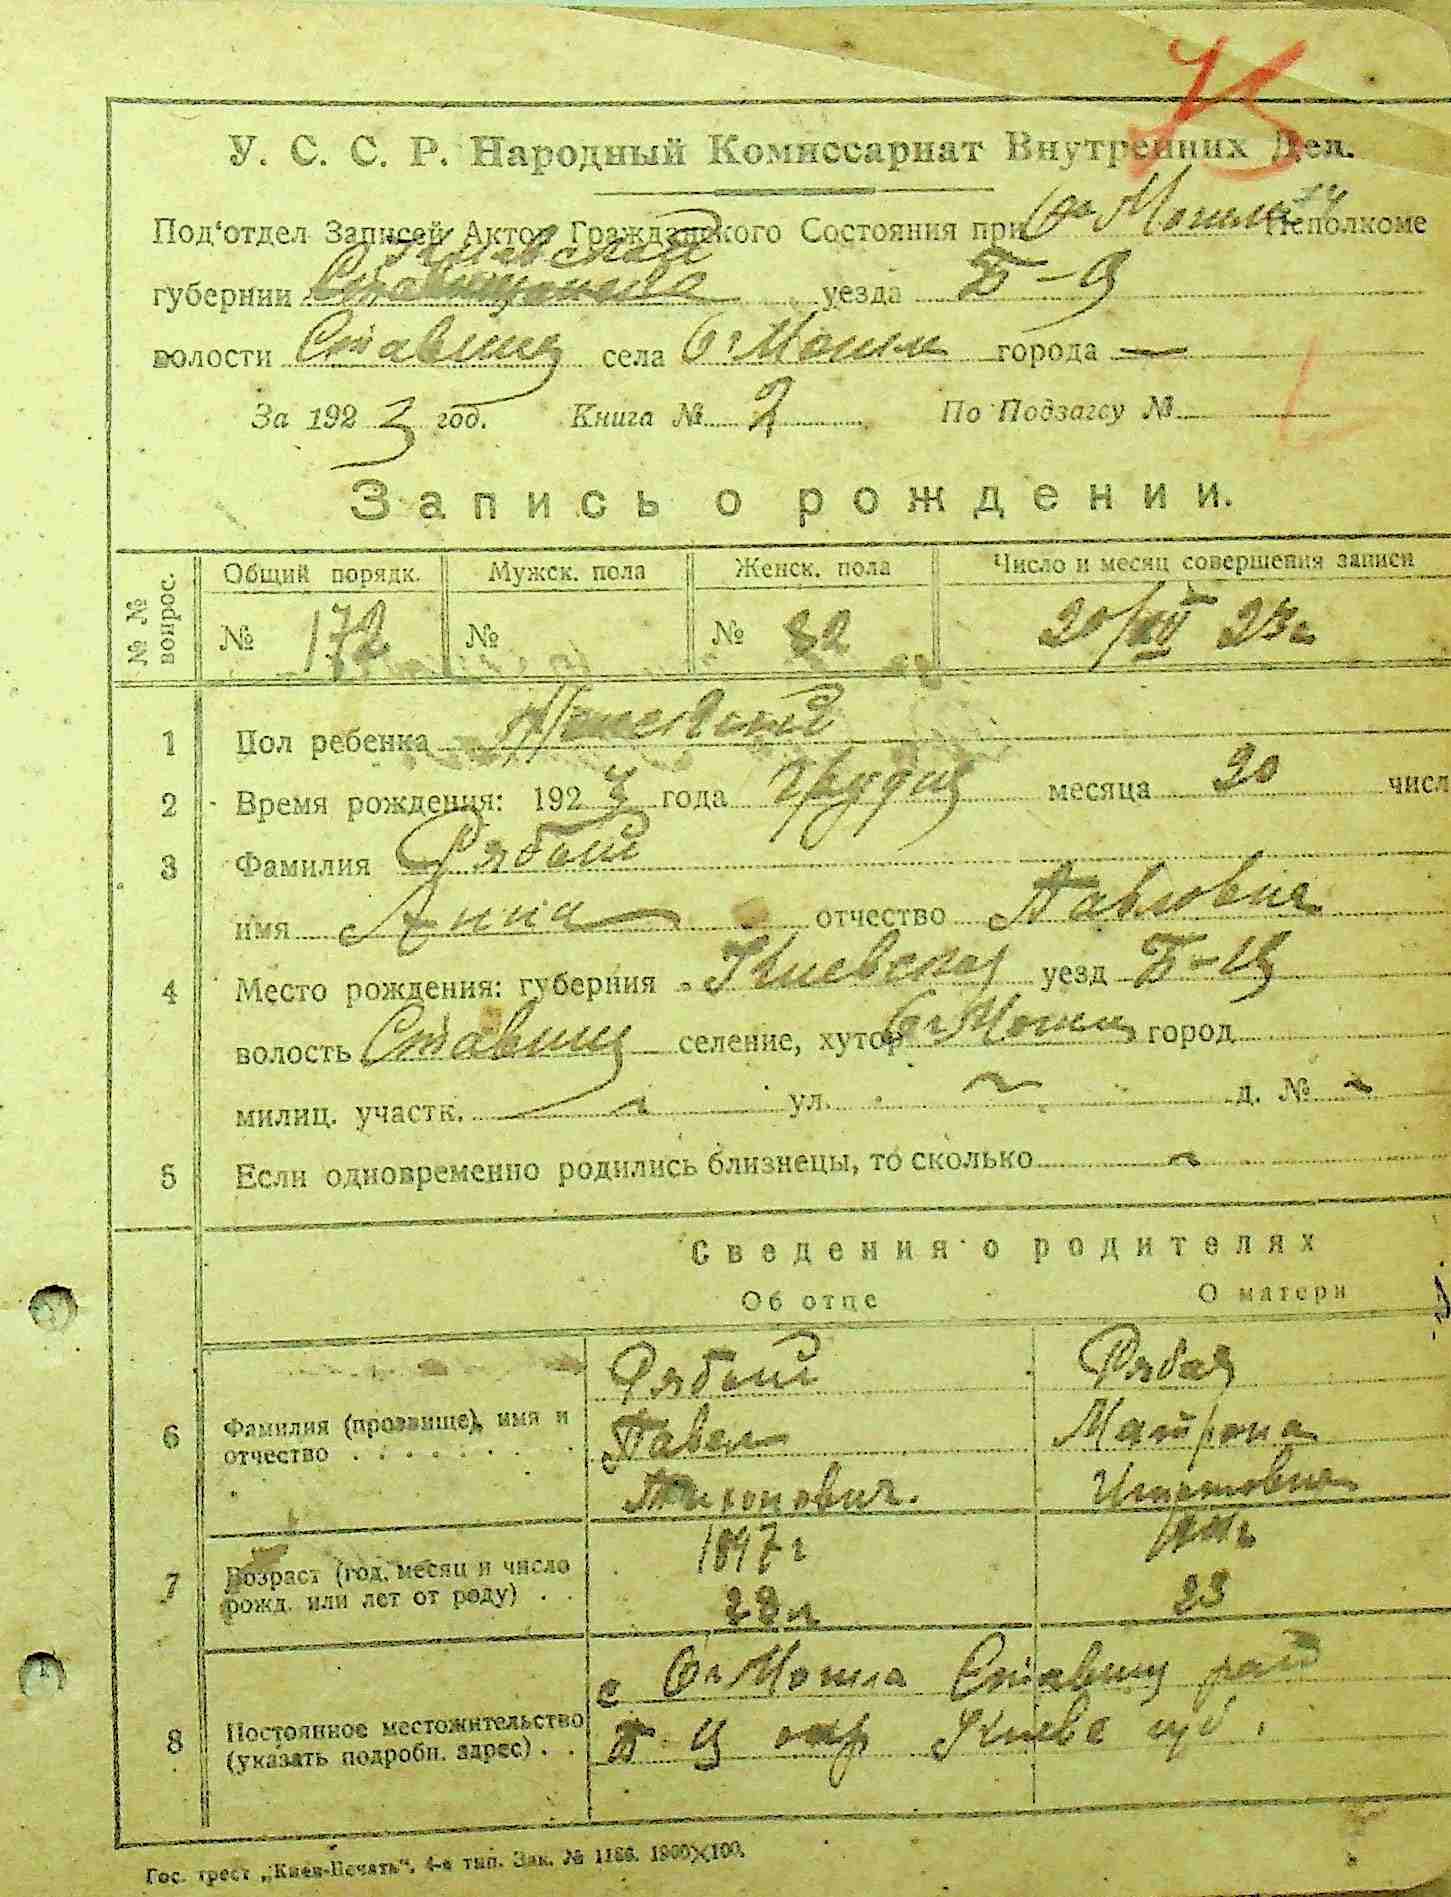 У. С. С. Р. Народный Комиссариат Внутренних Дел.
Под'отдел Записей Актов Гражданского Состояния при Исполкоме
губернии Киевской уезда Б-Ц
волости Ставищ села города —
За 1923 год. Книга № 2 По Подзагсу №
Запись о рождении.
№ № вопрос. Общий порядк. Мужск. пола Женск. пола Число и месяц совершения записи
№ 172 № № 82 20/XII 23 г.
1 Пол ребенка Женский
2 Время рождения: 1923 года Грудня месяца 20 числ
3 Фамилия Рябый
имя Анна отчество Павловна
4 Место рождения: губерния Киевская уезд Б-Ц
волость Ставищ селение, хутор город
милиц. участк. ул. д. №
5 Если одновременно родились близнецы, то сколько
Сведения о родителях
Об отце О матери
6 Фамилия (прозвище), имя и отчество
Рябый Рябая
Павел Матрона
Тихонович. Игнатовна
7 Возраст (год, месяц и число рожд. или лет от роду)
1897 г
23
8 Постоянное местожительство (указать подробн. адрес)
с Могила Ставищ рай
Б Ц окр Киевс губ.
Гос. трест „Киев-Печать“, 4-я тип. Зак. № 1186. 1800×100.